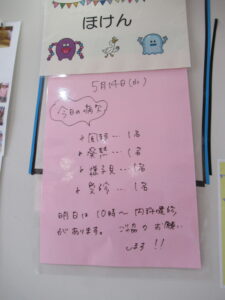 ほけん
5月14日(水)
今日の病欠
・ 1名
・発熱… 1名
・様子見… 1名
・受診… 1名
明日は 10時〜 内科健診
があります。 ご協力お願い
します!!